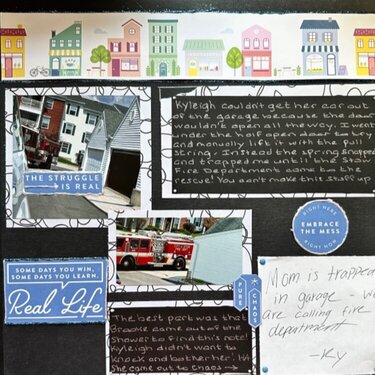 Kyleigh couldn't get her car out
of the garage because the door
wouldn't open all the way. I went
under the half open door to try
and manually lift it with the pull
string. Instead the spring snapped
and trapped me until the Stow
Fire Department came to the
rescue! You can't make this stuff up
THE STRUGGLE
IS REAL
RIGHT HERE
EMBRACE
THE MESS
RIGHT NOW
SOME DAYS YOU WIN,
SOME DAYS YOU LEARN.
Real Life
PURE
CHAOS
The best part was that
Brooke came out of the
shower to find this note!
Kyleigh didn't want to
knock and bother her!
She came out to chaos →
Mom is trapped
in garage -
are calling fire
department
-Ky